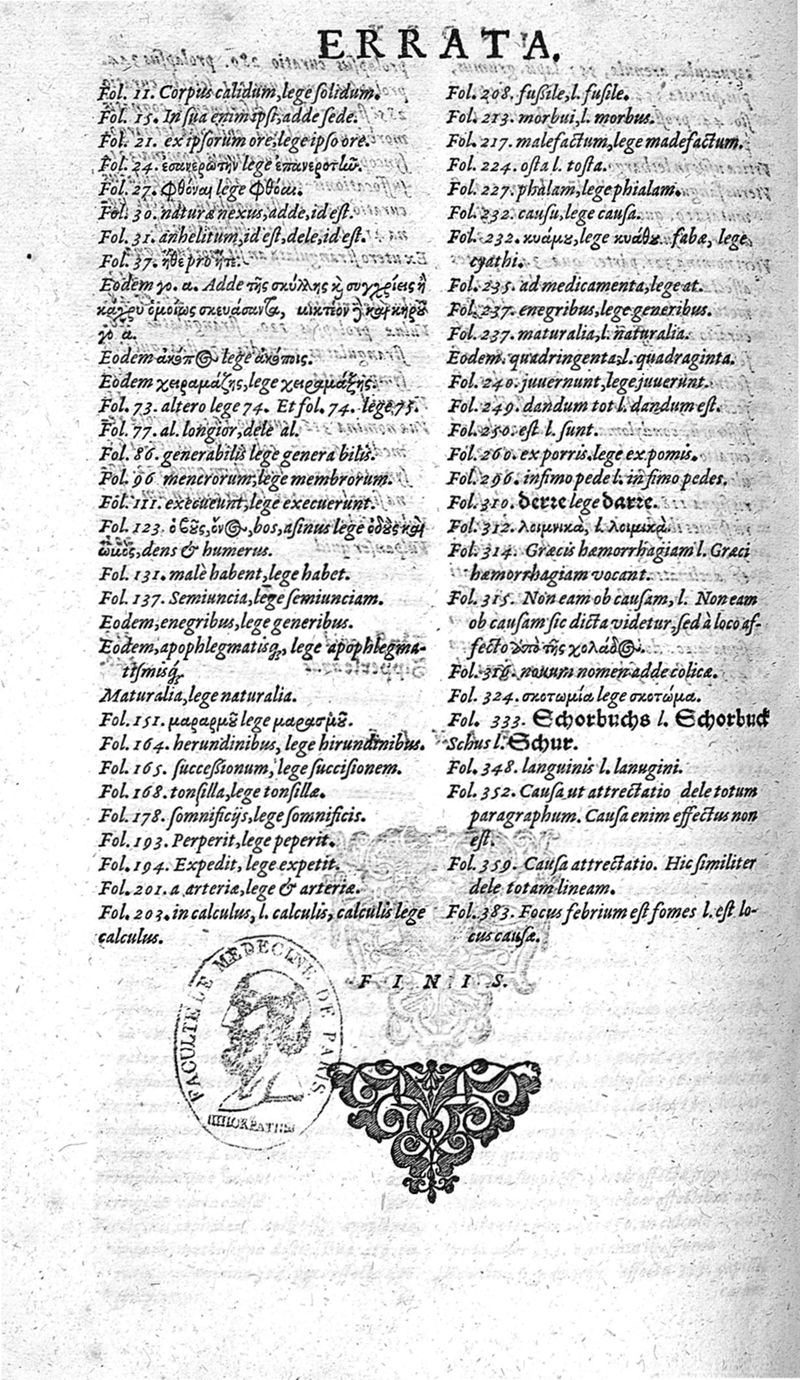 ERRATA.
Fol. 11. Corpus calidum, lege solidum.
Fol. 15. In sua enim ipsi, adde sede.
Fol. 21. ex ipsorum ore, lege ipso ore.
Fol. 24. lege
Fol. 27. φθόναι lege φθόαι.
Fol. 30. naturæ nexus, adde, id est.
Fol. 31. anhelitum, id est, dele, id est.
Fol. 37. ἤθε pro ἤπε.
Eodem γο. α. Adde τῆς σκύλλης
ὁμοίως
γο α.
Eodem lege ἀκόποις.
Eodem χειραμάζης, lege χειραμάξης.
Fol. 73. altero lege 74. Et fol. 74. lege 75.
Fol. 77. al. longior, dele al.
Fol. 86. generabilis lege genera bilis.
Fol. 96 mencrorum, lege membrorum.
Fol. 111. execueunt, lege execuerunt.
Fol. 123. bos, asinus lege
dens & humerus.
Fol. 131. malè habent, lege habet.
Fol. 137. Semiuncia, lege semiunciam.
Eodem, enegribus, lege generibus.
Eodem, apophlegmatisq́, lege apophlegma-
tismisq́.
Maturalia, lege naturalia.
Fol. 151. μαραρμοῦ lege μαρασμοῦ.
Fol. 164. herundinibus, lege hirundinibus.
Fol. 165. successionum, lege succisionem.
Fol. 168. tonsilla, lege tonsillæ.
Fol. 178. somnificijs, lege somnificis.
Fol. 193. Perperit, lege peperit.
Fol. 194. Expedit, lege expetit.
Fol. 201. a arteriæ, lege & arteriæ.
Fol. 203. in calculus, l. calculis, calculis lege
calculus.
Fol. 208. fussile, l. fusile.
Fol. 213. morbui, l. morbus.
Fol. 217. malefactum, lege madefactum.
Fol. 224. osta l. tosta.
Fol. 227. phalam, lege phialam.
Fol. 232. causu, lege causa.
Fol. 232. κυάμου, lege κυάθου. fabæ, lege,
cyathi.
Fol. 235. ad medicamenta, lege at.
Fol. 237. enegribus, lege generibus.
Fol. 237. maturalia, l. naturalia.
Eodem, quadringenta, l. quadraginta.
Fol. 240. juuernunt, lege juuerunt.
Fol. 249. dandum tot l. dandum est.
Fol. 250. est l. sunt.
Fol. 260. ex porris. lege ex pomis.
Fol. 296. infimo pede l. in simo pedes.
Fol. 310. derre lege darre.
Fol. 312. λοιμνικὰ, l. λοιμικὰ.
Fol. 314. Græcis hæmorrhagiam l. Græci
hæmorrhagiam vocant.
Fol. 315. Non eam ob causam, l. Non eam
ob causam sic dicta videtur, sed à loco af-
fecto ἀπὸ τῆς χολάδος.
Fol. 316. nouum nomen adde colicæ.
Fol. 324. σκοτωμία lege σκοτώμα.
Fol. 333. Schorbuchs l. Schorbuck
Schus l. Schur.
Fol. 348. languinis l. lanugini.
Fol. 352. Causa ut attrectatio dele totum
paragraphum. Causa enim effectus non
est.
Fol. 359. Causa attrectatio. Hic similiter
dele totam lineam.
Fol. 383. Focus febrium est fomes l. est lo-
cus causæ.
FINIS.
FACULTE DE MEDECINE DE PARIS